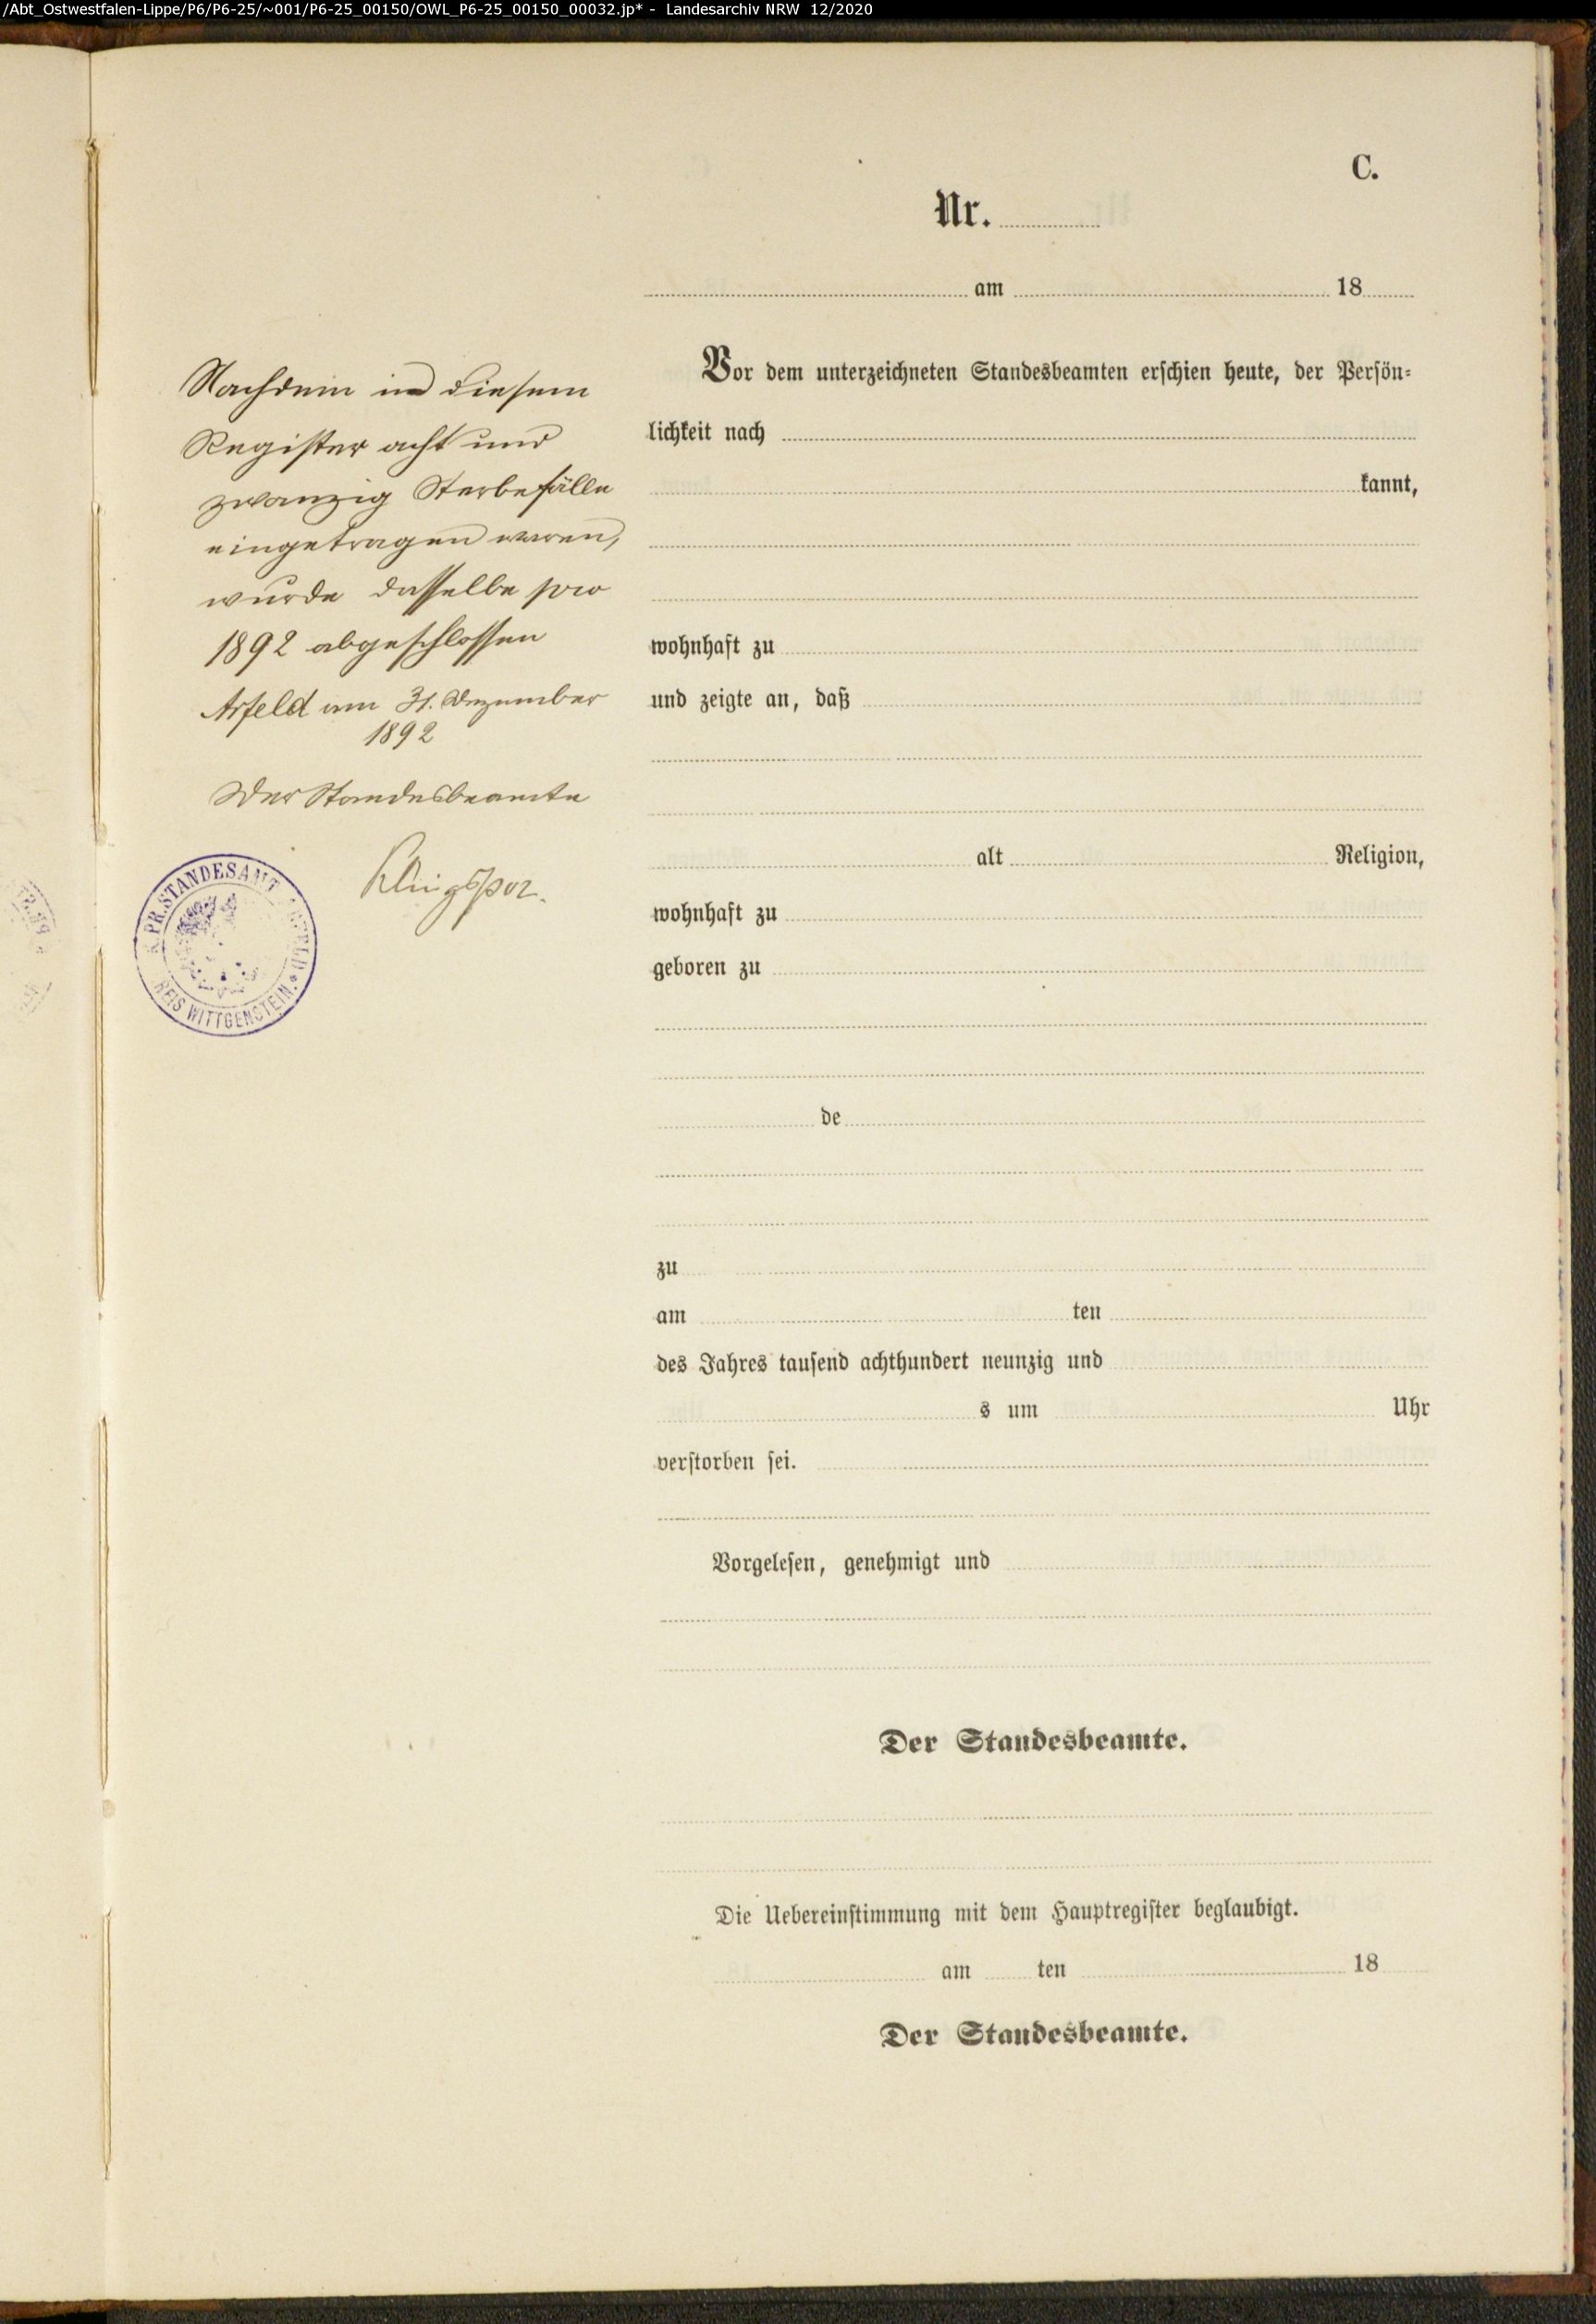 /Abt_Ostwestfalen-Lippe/P6/P6-25/~001/P6-25_00150/OWL_P6-25_00150_00032.jp* - Landesarchiv NRW 12/2020
C.
Nr.
am 18
Nachdem in diesem
Register acht und
zwanzig Sterbefälle
eingetragen waren,
wurde dasselbe pro
1892 abgeschlossen
Arfeld am 31. Dezember
1892
Der Standesbeamte
Klingspor.
PR. STANDESAMT
KREIS WITTGENSTEIN.
Vor dem unterzeichneten Standesbeamten erschien heute, der Persön-
lichkeit nach
kannt,
wohnhaft zu
und zeigte an, daß
alt Religion,
wohnhaft zu
geboren zu
de
zu
am ten
des Jahres tausend achthundert neunzig und
s um Uhr
verstorben sei.
Vorgelesen, genehmigt und
Der Standesbeamte.
Die Uebereinstimmung mit dem Hauptregister beglaubigt.
am ten 18
Der Standesbeamte.